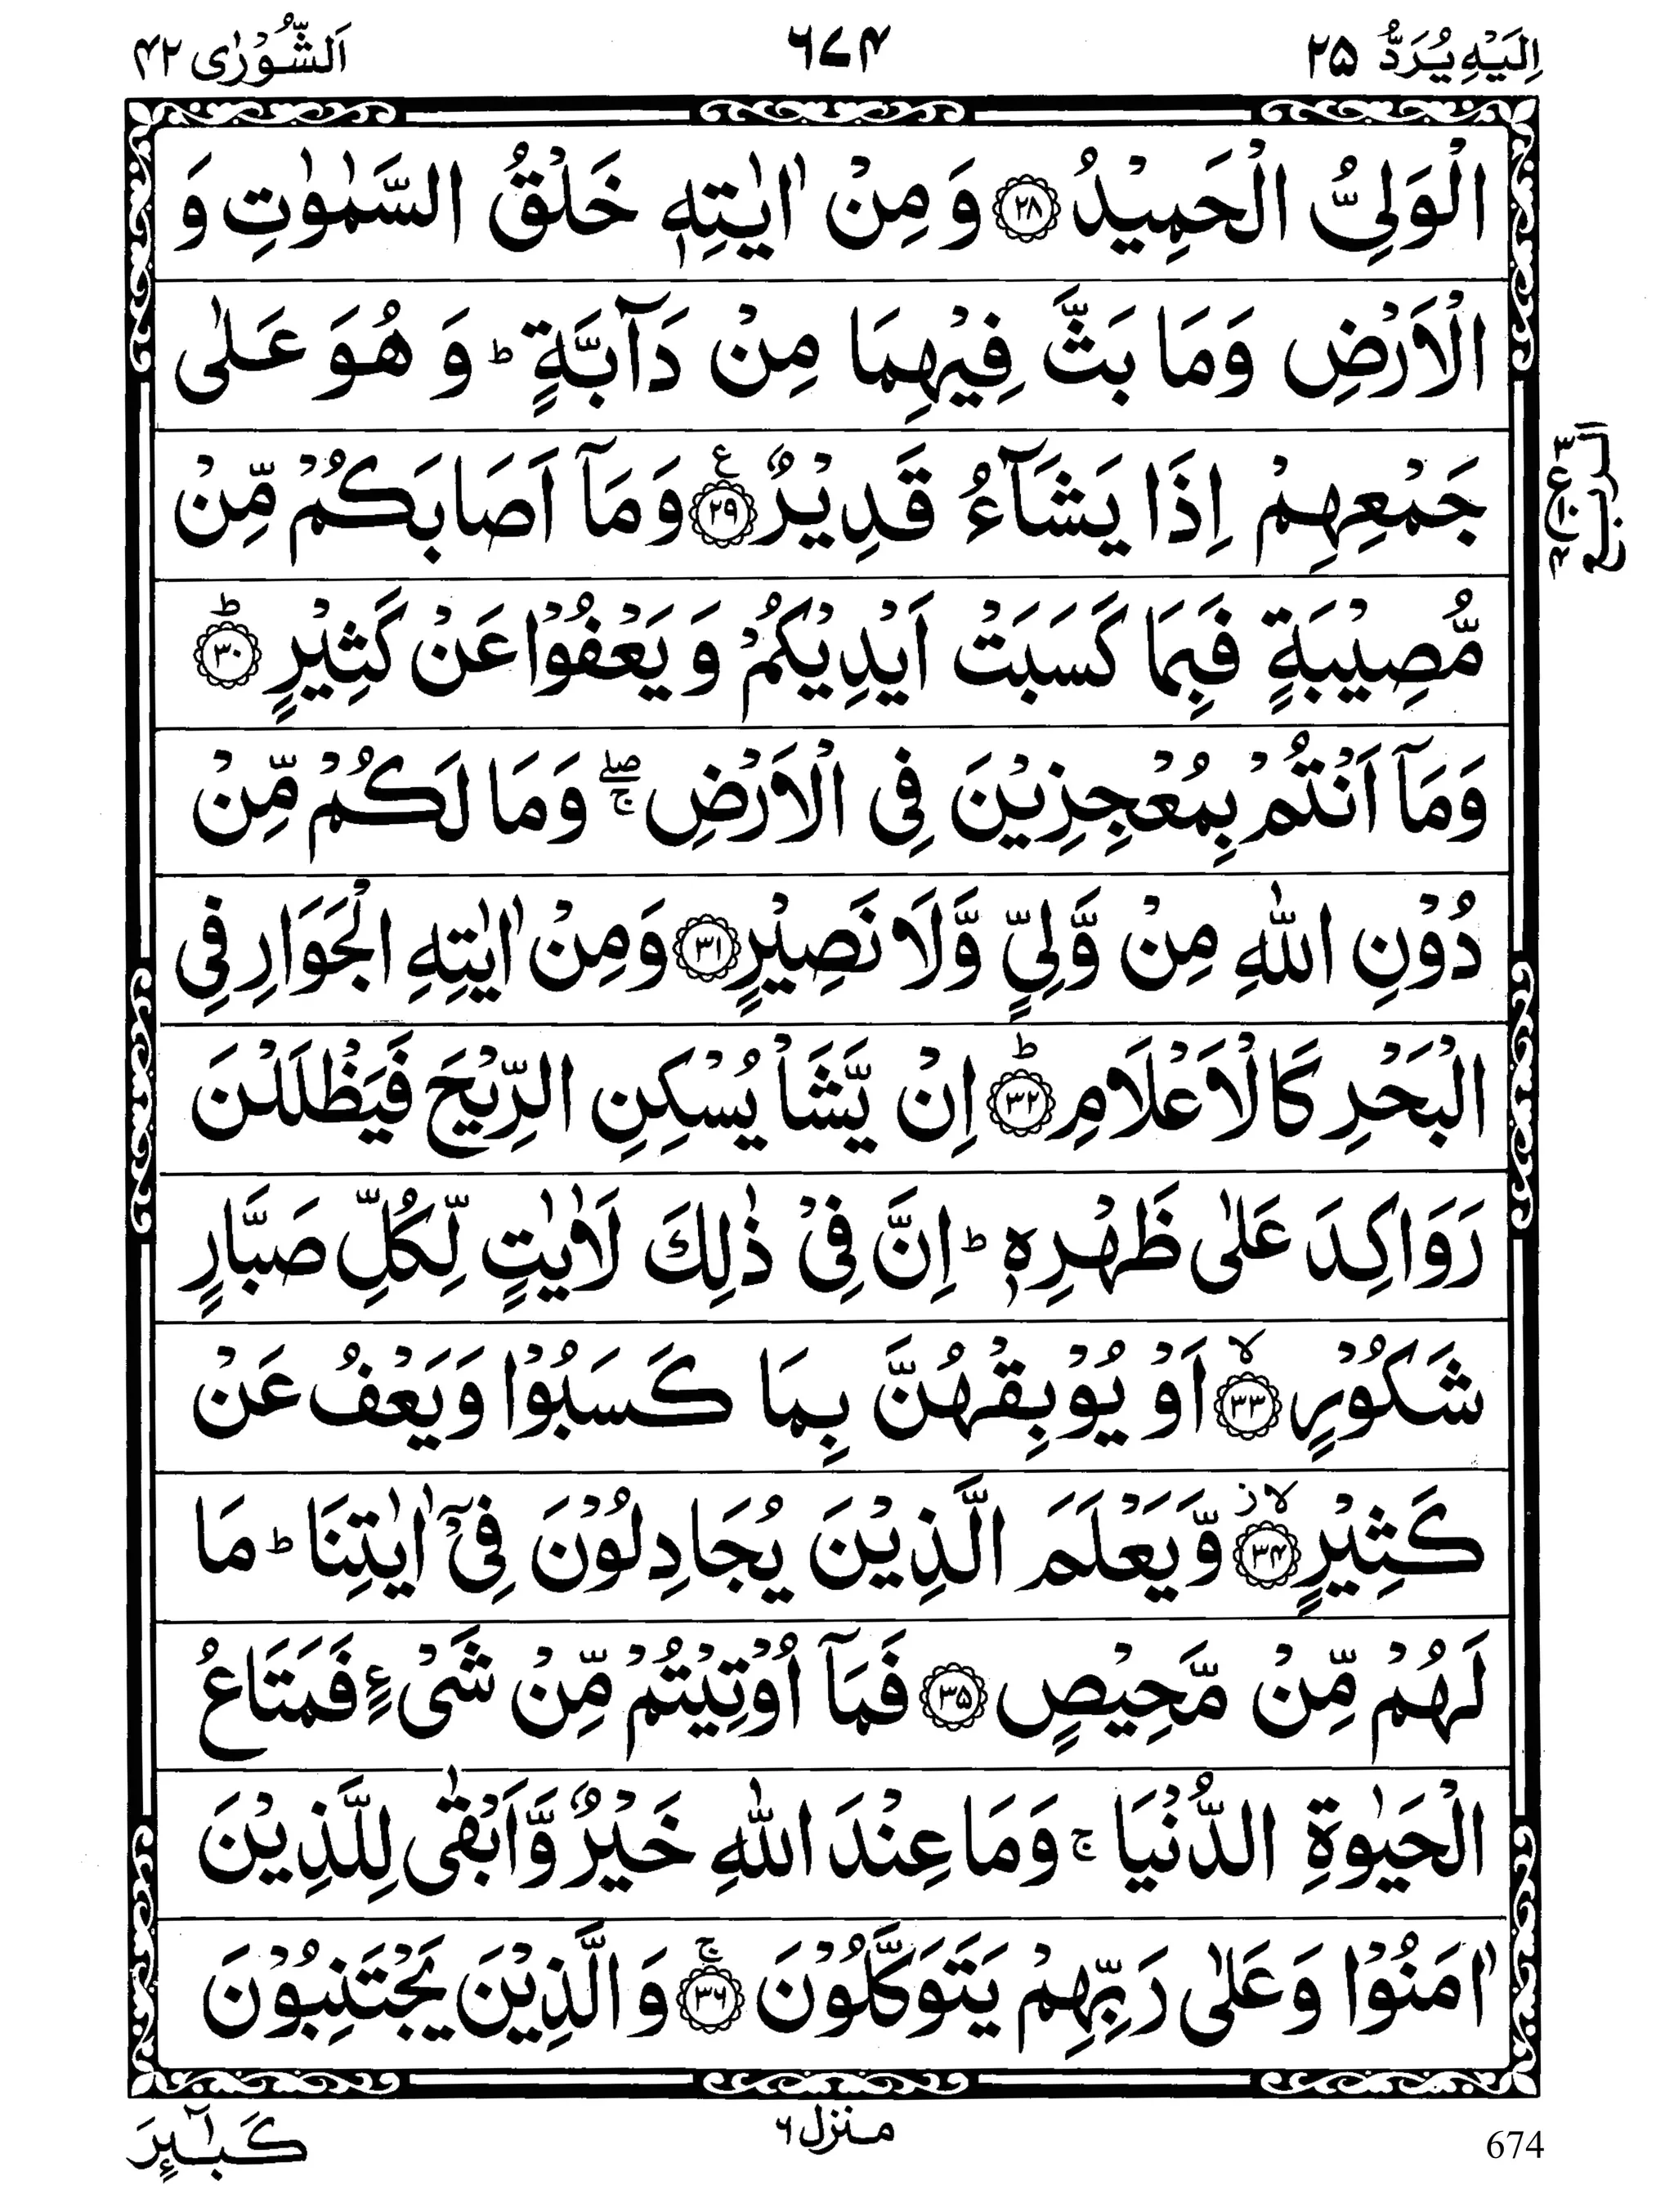 اِلَيْهِ يُرَدُّ ٢٥ ٦٧٤ اَلشُّوْرٰى ٤٢
الْوَلِيُّ الْحَمِيْدُ ۝٢٨ وَ مِنْ اٰيٰتِهٖ خَلْقُ السَّمٰوٰتِ وَ
الْاَرْضِ وَمَا بَثَّ فِيْهِمَا مِنْ دَآبَّةٍ ؕ وَ هُوَ عَلٰى
جَمْعِهِمْ اِذَا يَشَآءُ قَدِيْرٌ ۝٢٩ ع وَمَآ اَصَابَكُمْ مِّنْ
مُّصِيْبَةٍ فَبِمَا كَسَبَتْ اَيْدِيْكُمْ وَ يَعْفُوْا عَنْ كَثِيْرٍ ؕ ۝٣٠
وَمَآ اَنْتُمْ بِمُعْجِزِيْنَ فِى الْاَرْضِ ۖۚ وَمَا لَكُمْ مِّنْ
دُوْنِ اللّٰهِ مِنْ وَّلِيٍّ وَّلَا نَصِيْرٍ ۝٣١ وَمِنْ اٰيٰتِهِ الْجَوَارِ فِى
الْبَحْرِ كَالْاَعْلَامِ ؕ ۝٣٢ اِنْ يَّشَاْ يُسْكِنِ الرِّيْحَ فَيَظْلَلْنَ
رَوَاكِدَ عَلٰى ظَهْرِهٖ ؕ اِنَّ فِىْ ذٰلِكَ لَاٰيٰتٍ لِّكُلِّ صَبَّارٍ
شَكُوْرٍ ۙ ۝٣٣ اَوْ يُوْبِقْهُنَّ بِمَا كَسَبُوْا وَيَعْفُ عَنْ
كَثِيْرٍ ۙز ۝٣٤ وَّيَعْلَمَ الَّذِيْنَ يُجَادِلُوْنَ فِىْٓ اٰيٰتِنَا ؕ مَا
لَهُمْ مِّنْ مَّحِيْصٍ ۝٣٥ فَمَآ اُوْتِيْتُمْ مِّنْ شَىْءٍ فَمَتَاعُ
الْحَيٰوةِ الدُّنْيَا ۚ وَمَا عِنْدَ اللّٰهِ خَيْرٌ وَّاَبْقٰى لِلَّذِيْنَ
اٰمَنُوْا وَعَلٰى رَبِّهِمْ يَتَوَكَّلُوْنَ ۚ ۝٣٦ وَالَّذِيْنَ يَجْتَنِبُوْنَ
الربع
٣ ع ١٠ ٤
674 منزل ٦ كَبٰٓئِرَ